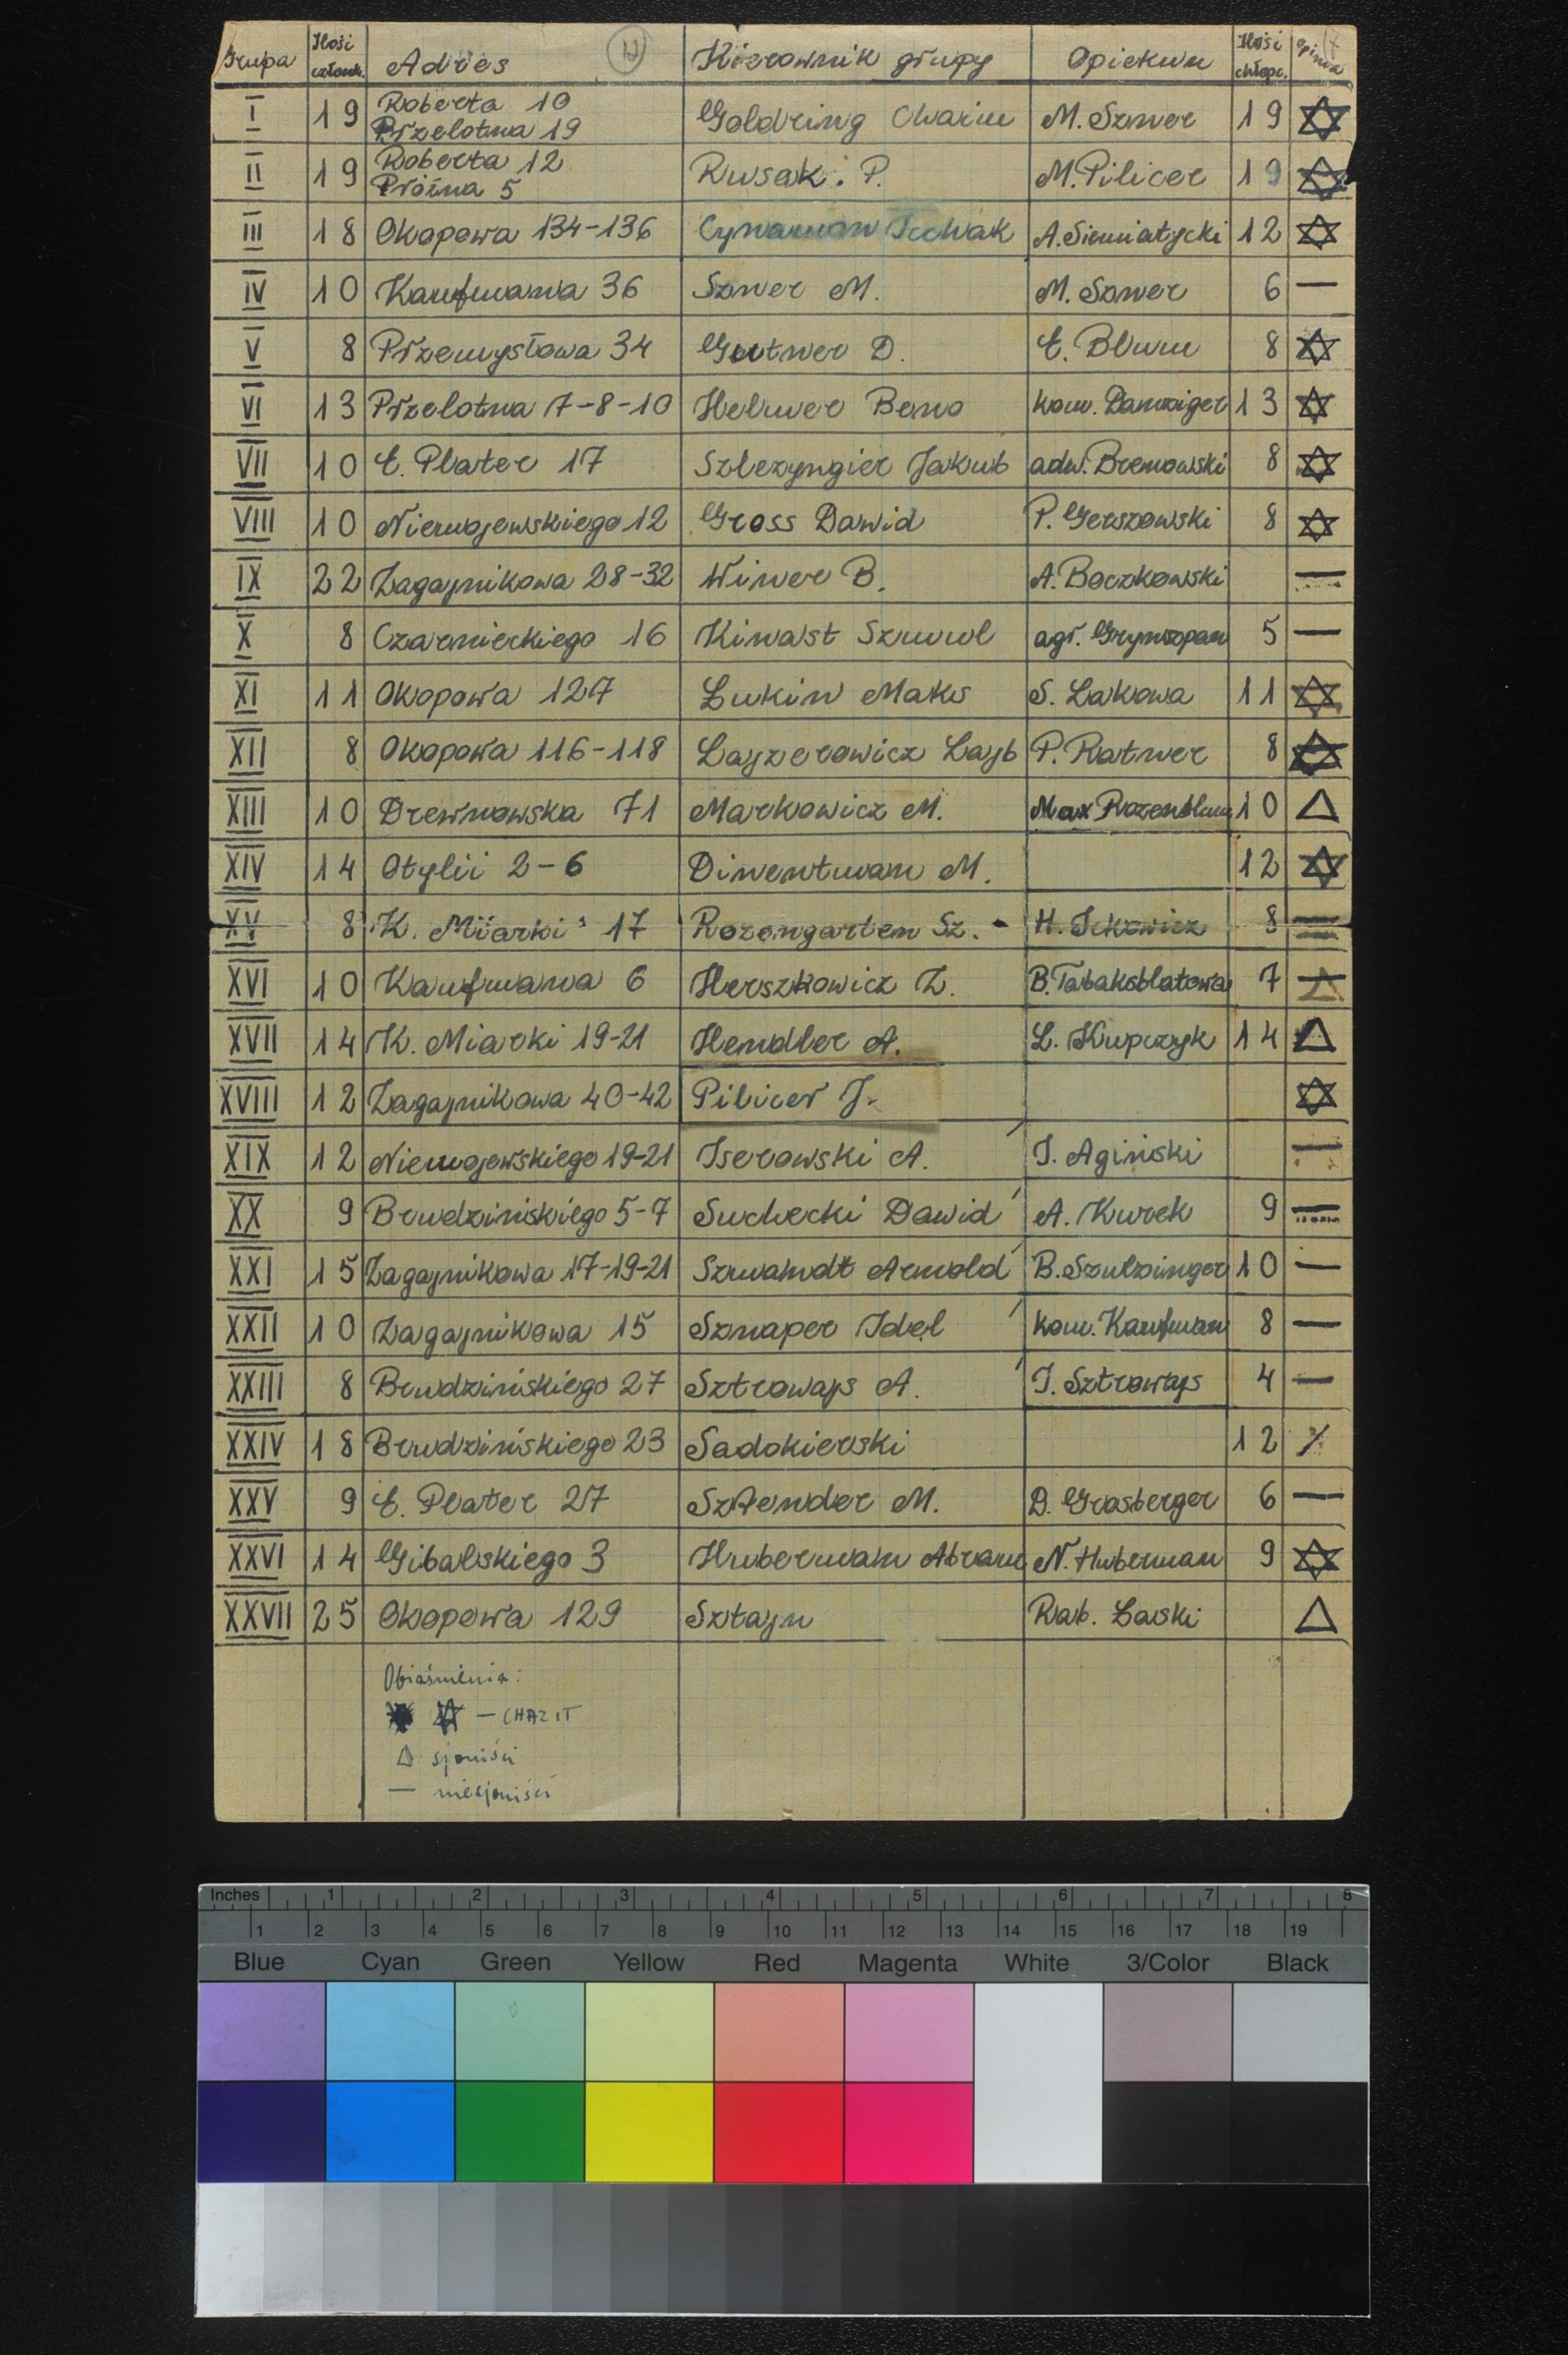 Grupa Ilość członk. Adres Kierownik grupy Opiekun Ilość chłopc. opinia
I 19 Roberta 10 Przelotna 19 Goldring Chaim M. Szner 19 ✡
II 19 Roberta 12 Próżna 5 Rusak. P. M. Pilicer 19 ✡
III 18 Okopowa 134-136 Cynamon Icchak A. Siemiatycki 12 ✡
IV 10 Kaufmana 36 Szner M. M. Szner 6 —
V 8 Przemysłowa 34 Gutner D. E. Blum 8 ✡
VI 13 Przelotna 7-8-10 Helmer Beno kom. Danziger 13 ✡
VII 10 E. Plater 17 Szlezyngier Jakub adw. Bronowski 8 ✡
VIII 10 Niemojewskiego 12 Gross Dawid P. Gerszowski 8 ✡
IX 22 Zagajnikowa 28-32 Winer B. A. Boczkowski —
X 8 Czarnieckiego 16 Kinast Szmul agr. Grynszpan 5 —
XI 11 Okopowa 127 Lukin Maks S. Lakowa 11 ✡
XII 8 Okopowa 116-118 Lajzerowicz Lajb P. Ratner 8 ✡
XIII 10 Drewnowska 71 Markowicz M. Max Rozenblum 10 △
XIV 14 Otylii 2-6 Dinentman M. 12 ✡
XV 8 K. Miarki 17 Rozengarten Sz. H. Ickowicz 8 —
XVI 10 Kaufmana 6 Herszkowicz Z. B. Tabaksblatowa 7 —
XVII 14 K. Miarki 19-21 Hendler A. L. Kupczyk 14 △
XVIII 12 Zagajnikowa 40-42 Pilicer J. ✡
XIX 12 Niemojewskiego 19-21 Iserowski A. I. Agiński —
XX 9 Brudzińskiego 5-7 Suchecki Dawid A. Kurek 9 —
XXI 15 Zagajnikowa 17-19-21 Szmandt Arnold B. Szulzinger 10 —
XXII 10 Zagajnikowa 15 Sznaper Idel kom. Kaufman 8 —
XXIII 8 Brudzińskiego 27 Sztrowajs A. I. Sztrowajs 4 —
XXIV 18 Brudzińskiego 23 Sadokierski 12
XXV 9 E. Plater 27 Sztender M. D. Grasberger 6 —
XXVI 14 Gibalskiego 3 Huberman Abram N. Huberman 9 ✡
XXVII 25 Okopowa 129 Sztajn Rab. Laski △
Objaśnienia:
✡ — CHAZIT
△ sjoniści
— niesjoniści
Inches 1 2 3 4 5 6 7 8
1 2 3 4 5 6 7 8 9 10 11 12 13 14 15 16 17 18 19
Blue Cyan Green Yellow Red Magenta White 3/Color Black